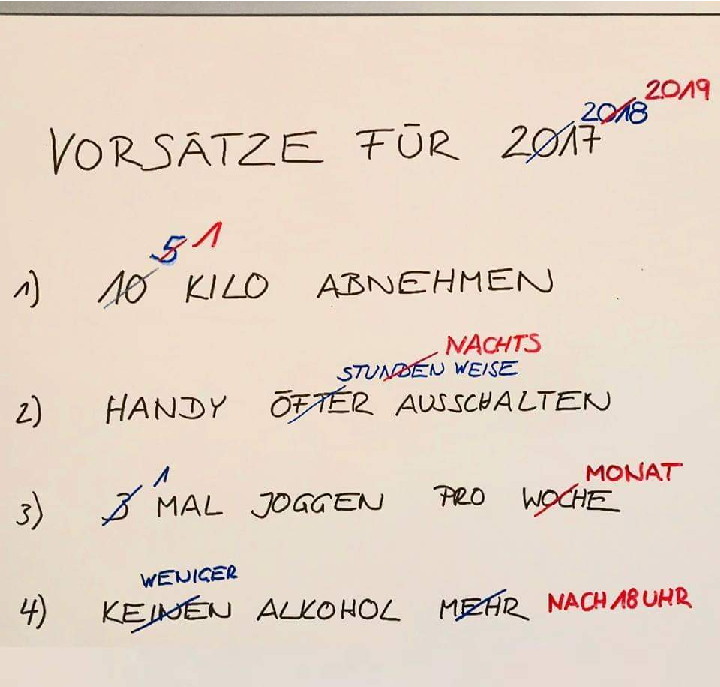 2019
2018
VORSÄTZE FÜR 2017
5 1
1) 10 KILO ABNEHMEN
NACHTS
STUNDEN WEISE
2) HANDY ÖFTER AUSSCHALTEN
1 MONAT
3) 3 MAL JOGGEN PRO WOCHE
WENIGER
4) KEINEN ALKOHOL MEHR NACH 18 UHR